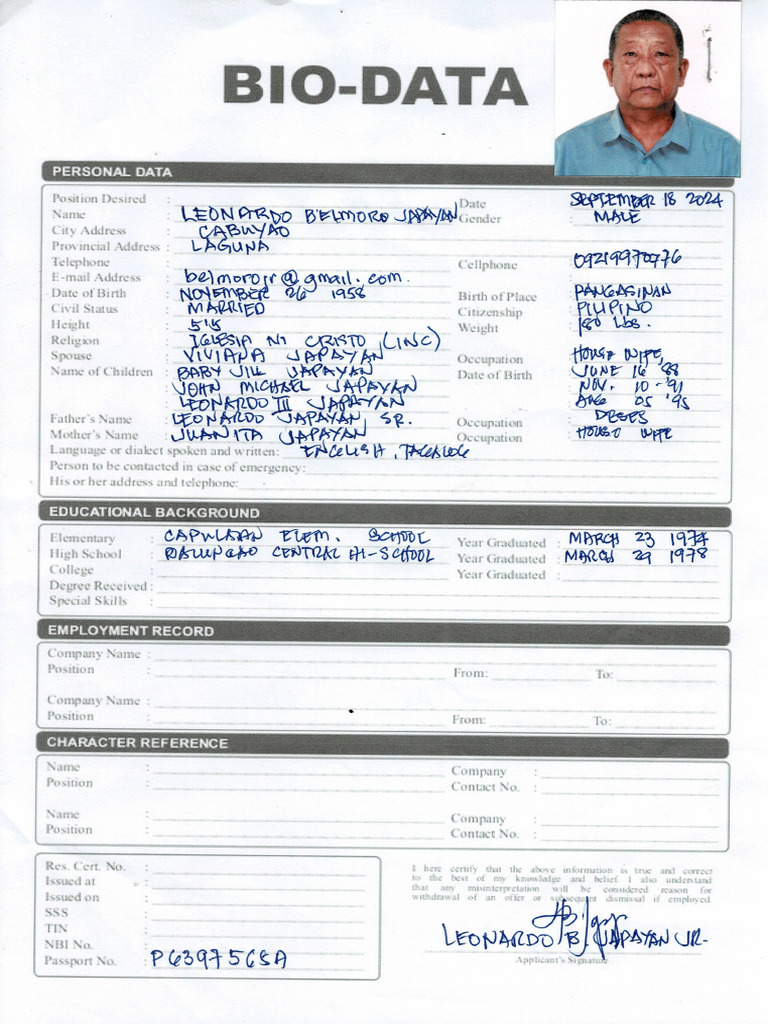 BIO-DATA
PERSONAL DATA
Position Desired :
Date : SEPTEMBER 18 2024
Name : LEONARDO BELMORO JAPAYAN
Gender : MALE
City Address : CABUYAO
Provincial Address : LAGUNA
Telephone :
Cellphone : 09219970976
E-mail Address : belmorojr@gmail.com.
Date of Birth : NOVEMBER 26 1958
Birth of Place : PANGASINAN
Civil Status : MARRIED
Citizenship : PILIPINO
Height : 5'5
Weight : 180 lbs.
Religion : IGLESIA NI CRISTO (INC)
Spouse : VIVIANA JAPAYAN
Occupation : HOUSE WIFE,
Name of Children : BABY JILL JAPAYAN
Date of Birth : JUNE 16 '88
JOHN MICHAEL JAPAYAN
NOV. 10 - '91
LEONARDO III JAPAYAN
AUG 05 '95
Father's Name : LEONARDO JAPAYAN SR.
Occupation :
Mother's Name : JUANITA JAPAYAN
Occupation : HOUSE WIFE
Language or dialect spoken and written: ENGLISH, TAGALOG
Person to be contacted in case of emergency:
His or her address and telephone:
EDUCATIONAL BACKGROUND
Elementary : ELEM. SCHOOL
Year Graduated : MARCH 23 1974
High School : CENTRAL HI-SCHOOL
Year Graduated : MARCH 29 1978
College :
Year Graduated :
Degree Received :
Special Skills :
EMPLOYMENT RECORD
Company Name :
Position :
From: To:
Company Name :
Position :
From: To:
CHARACTER REFERENCE
Name :
Company :
Position :
Contact No. :
Name :
Company :
Position :
Contact No. :
Res. Cert. No. :
Issued at :
Issued on :
SSS :
TIN :
NBI No. :
Passport No. : P6397565A
I here certify that the above information is true and correct
to the best of my knowledge and belief. I also understand
that any misinterpretation will be considered reason for
withdrawal of an offer or subsequent dismissal if employed.
LEONARDO B. JAPAYAN JR.
Applicant's Signature